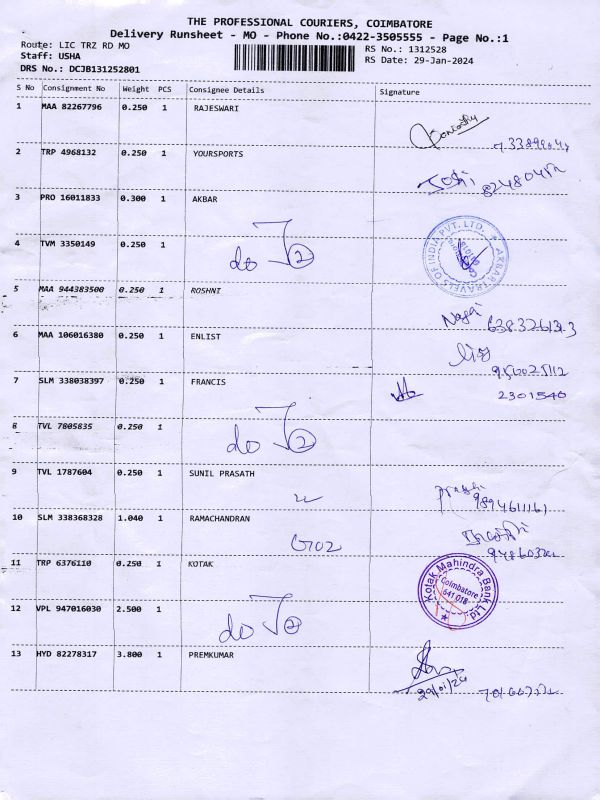 THE PROFESSIONAL COURIERS, COIMBATORE
Delivery Runsheet - MO - Phone No.:0422-3505555 - Page No.:1
Route: LIC TRZ RD MO
RS No.: 1312528
Staff: USHA
RS Date: 29-Jan-2024
DRS No.: DCJB131252801
S No Consignment No Weight PCS Consignee Details Signature
1 MAA 82267796 0.250 1 RAJESWARI
2 TRP 4968132 0.250 1 YOURSPORTS
3 PRO 16011833 0.300 1 AKBAR
AKBAR TRAVELS OF INDIA PVT. LTD.
do
4 TVM 3350149 0.250 1
5 MAA 944383500 0.250 1 ROSHNI
6 MAA 106016380 0.250 1 ENLIST
7 SLM 338038397 0.250 1 FRANCIS
2301540
8 TVL 7805835 0.250 1
do
9 TVL 1787604 0.250 1 SUNIL PRASATH
9894611161
10 SLM 338368328 1.040 1 RAMACHANDRAN
11 TRP 6376110 0.250 1 KOTAK
Kotak Mahindra Bank Ltd
Coimbatore
641 018
12 VPL 947016030 2.500 1
do
13 HYD 82278317 3.800 1 PREMKUMAR
29/01/24